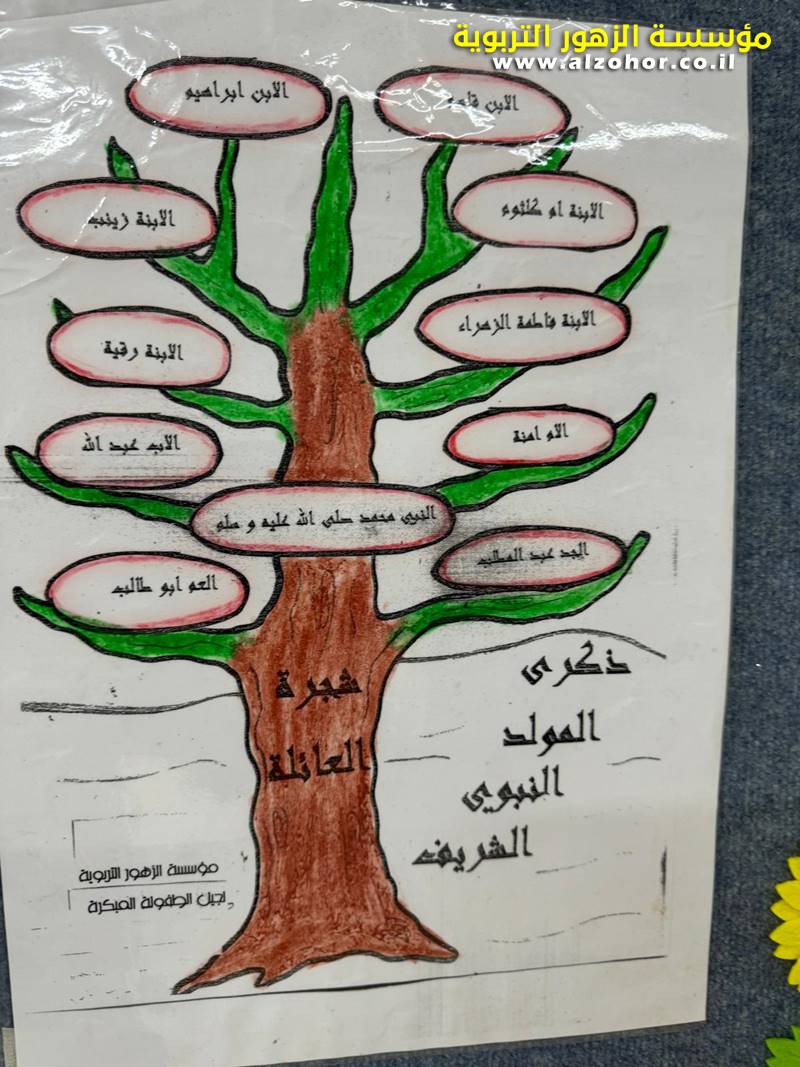 مؤسسة الزهور التربوية
www.alzohor.co.il
الابن ابراهيم
الابن
الابنة زينب
الابنة ام كلثوم
الابنة رقية
الابنة فاطمة الزهراء
الاب عبد الله
الام امنة
النبي محمد صلى الله عليه و سلم
العم ابو طالب
الجد عبد المطلب
شجرة
العائلة
ذكرى
المولد
النبوي
الشريف
مؤسسة الزهور التربوية
لجيل الطفولة المبكرة